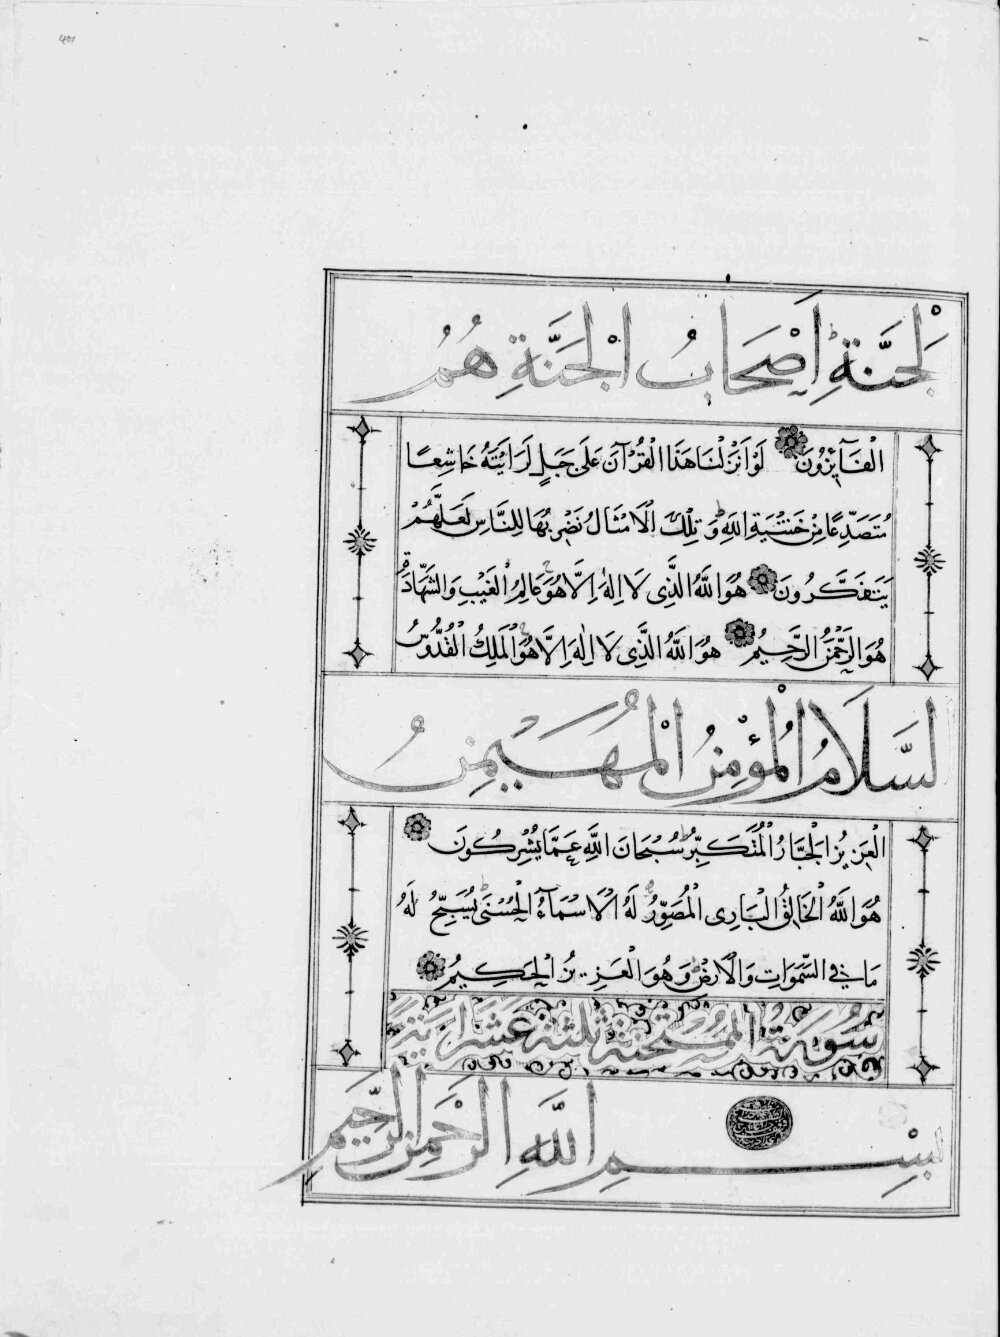 لْجَنَّةِ اَصْحَابُ الْجَنَّةِ هُمُ
الْفَآئِزُونَ لَوْ اَنْزَلْنَا هَذَا الْقُرْآنَ عَلَى جَبَلٍ لَرَاَيْتَهُ خَاشِعًا
مُتَصَدِّعًا مِنْ خَشْيَةِ اللهِ وَ تِلْكَ الْاَمْثَالُ نَضْرِبُهَا لِلنَّاسِ لَعَلَّهُمْ
يَتَفَكَّرُونَ هُوَ اللَّهُ الَّذِى لَا اِلٰهَ اِلَّا هُوَ عَالِمُ الْغَيْبِ وَالشَّهَادَةِ
هُوَ الرَّحْمٰنُ الرَّحِيمُ هُوَ اللَّهُ الَّذِى لَا اِلٰهَ اِلَّا هُوَ الْمَلِكُ الْقُدُّوسُ
لسَّلَامُ الْمُؤْمِنُ الْمُهَيْمِنُ
الْعَزِيزُ الْجَبَّارُ الْمُتَكَبِّرُ سُبْحَانَ اللَّهِ عَمَّا يُشْرِكُونَ
هُوَ اللَّهُ الْخَالِقُ الْبَارِى الْمُصَوِّرُ لَهُ الْاَسْمَآءُ الْحُسْنَى يُسَبِّحُ لَهُ
مَا فِى السَّمَوَاتِ وَالْاَرْضِ وَهُوَ الْعَزِيزُ الْحَكِيمُ
سُورَةُ الْمُمْتَحِنَة ثلثة عَشَرَ اٰيَة
بِسْمِ اللَّهِ الرَّحْمٰنِ الرَّحِيمِ